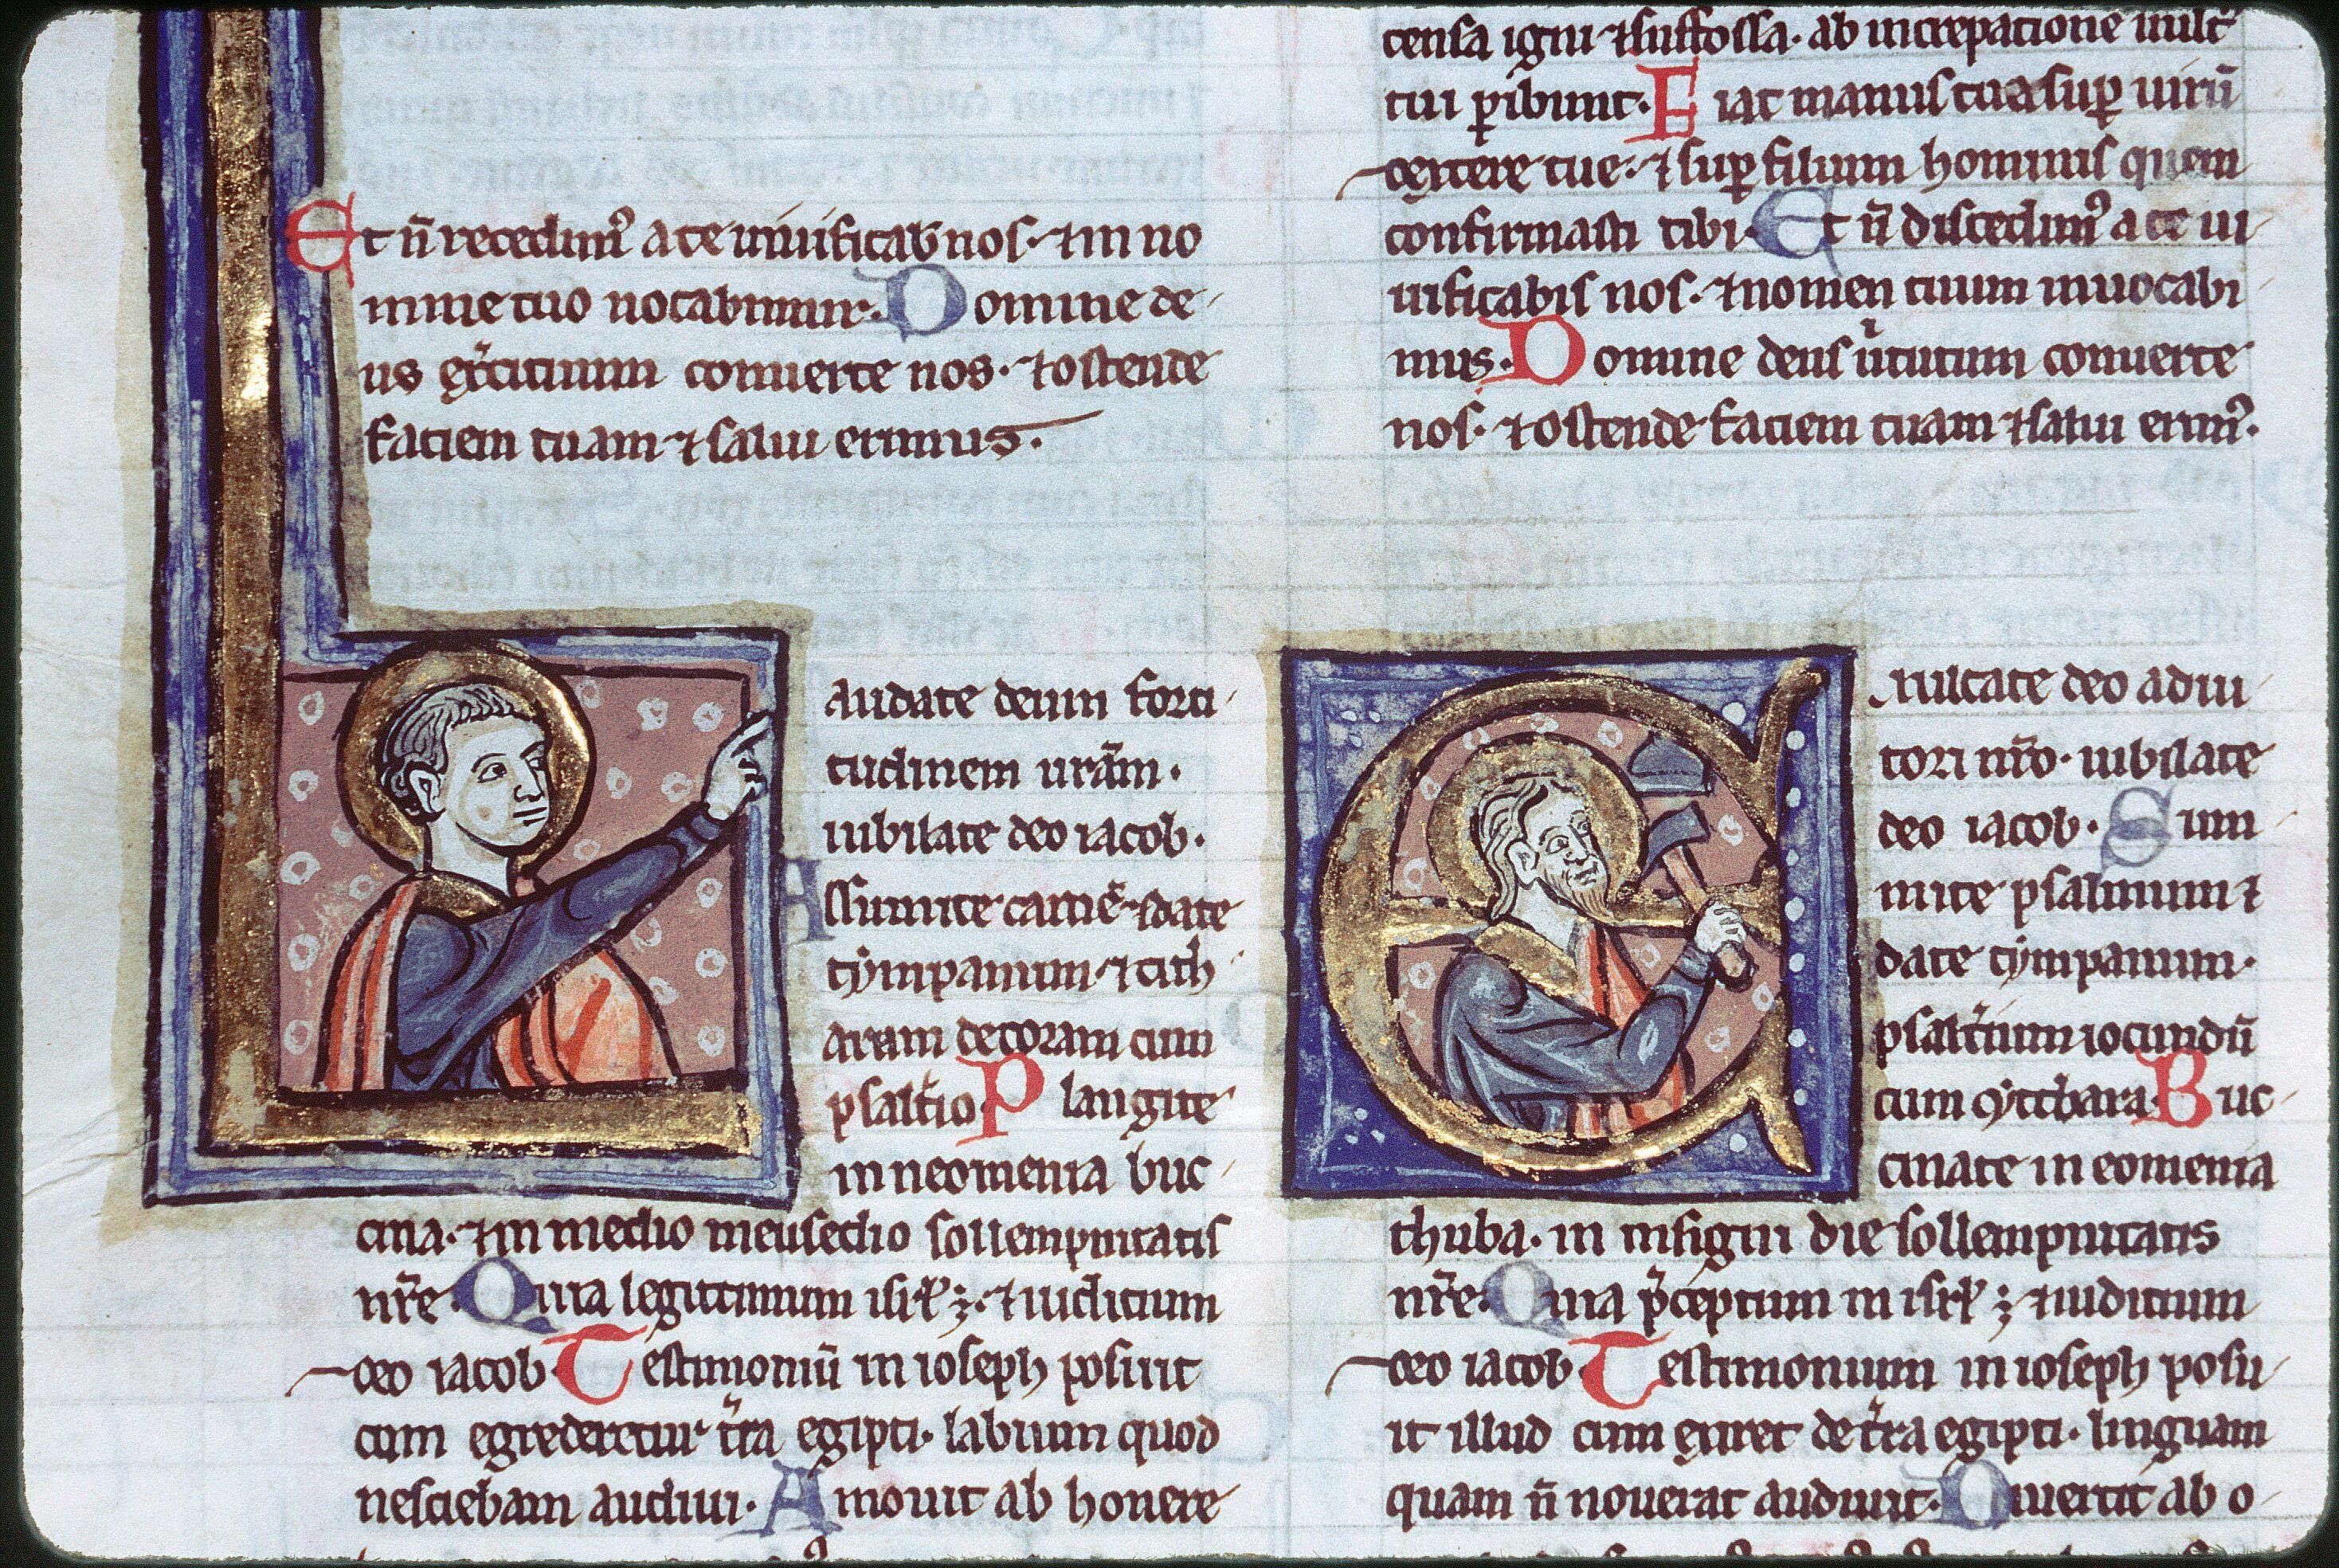 Et n̄ recedimꝰ a te uiuificab nos · ⁊ in no
mine tuo uocabimur · Domine de-
us exẜcituum conuerte nos · ⁊ ostende
faciem tuam ⁊ salui erimus ·
Laudate deum forti-
tudinem ur̄am ·
iubilate deo iacob ·
Assumite carmē · ⁊ date
tẏmpanum · ⁊ cith-
aram decoram cum
psalt̾io · Plangite
in neomenia buc-
cina · ⁊ in medio mense dio sollempnitatis
nr̄e · Quia legittimum isrł ꝫ · ⁊ iudicium
deo iacob · Testimoniū in ioseph posuit
cum egrederetur t̾ra egipti · labium quod
nesciebam audiui · Amouit ab honere
censa igni ⁊ suffossa · ab increpatione uult̾
tui ꝑibunt · Fiat manus tua suꝑ uirū
dextere tue · ⁊ suꝑ filium hominis quem
confirmasti tibi · Et n̄ discedimꝰ a te ui-
uificabis nos · ⁊ nomen tuum inuocabi-
mus · Domine deus u̾tutum conuerte
nos · ⁊ ostende faciem tuam ⁊ salui erimꝰ ·
Exultate deo adiu-
tori nr̄o · iubilate
deo iacob · Sum-
mite psalmum ⁊
date tẏmpanum ·
psalt̾ium iocundū
cum cẏthara · Buc-
cinate in eomenia
thuba · in insigni die sollempnitatis
nr̄e · Quia p̾ceptum in isrł ꝫ · ⁊ iudicium
deo iacob · Testimonium in ioseph posu-
it illud cum exiret de t̾ra egipti · linguam
quam n̄ nouerat audiuit · Diuertit ab o-